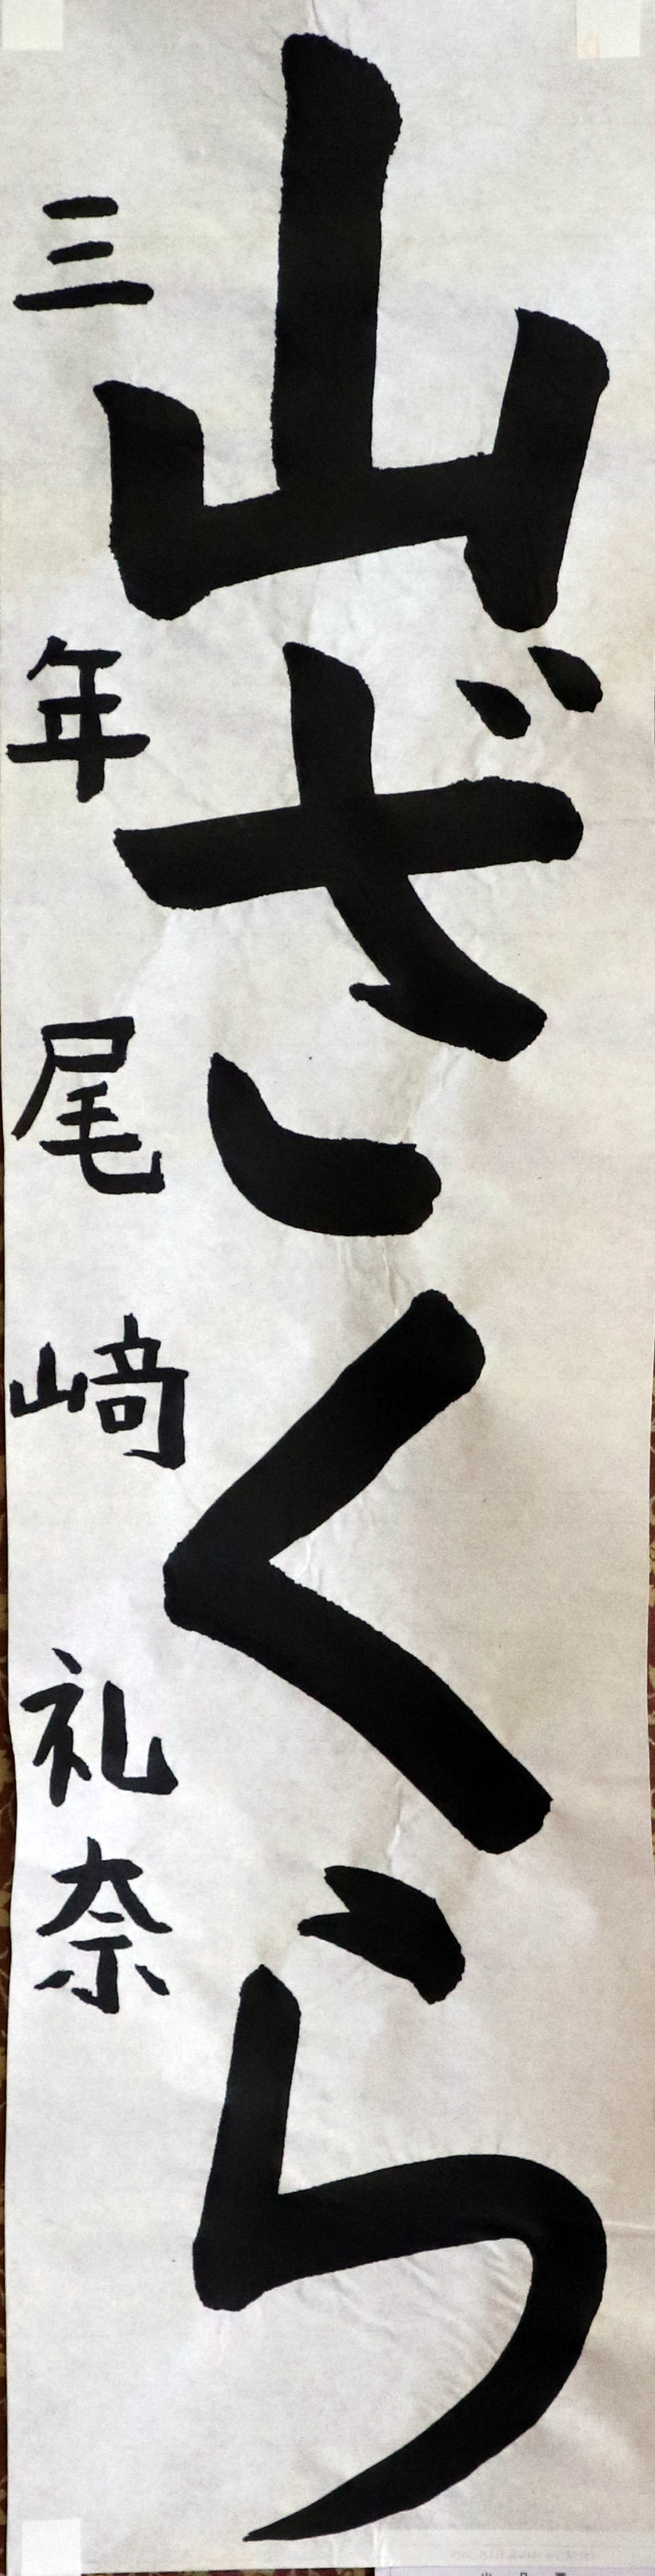 山ざくら
三年尾﨑礼奈